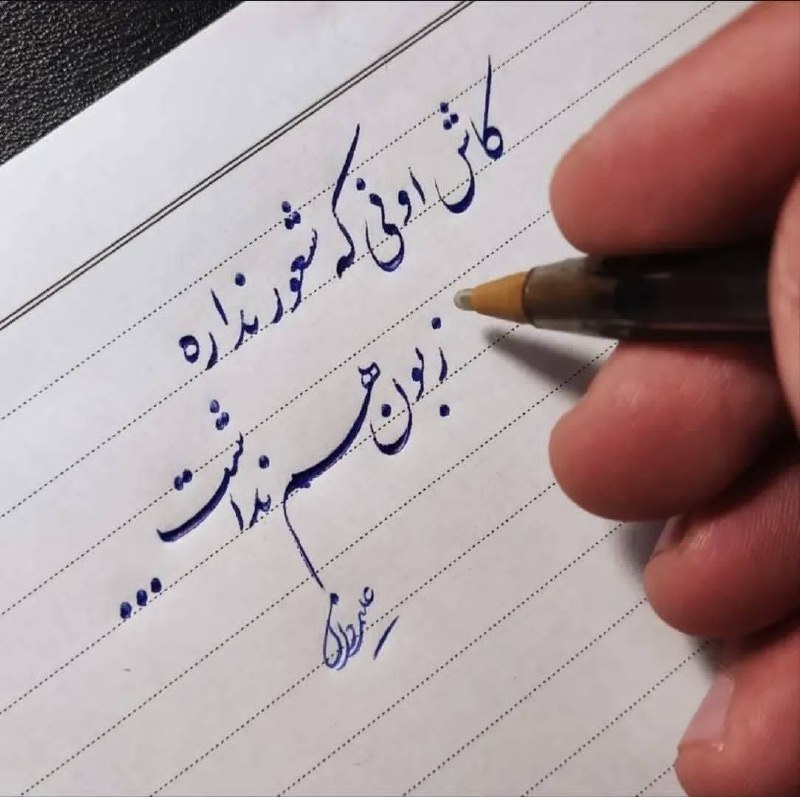 کاش اونی که شعور نداره
زبون هم نداشت...